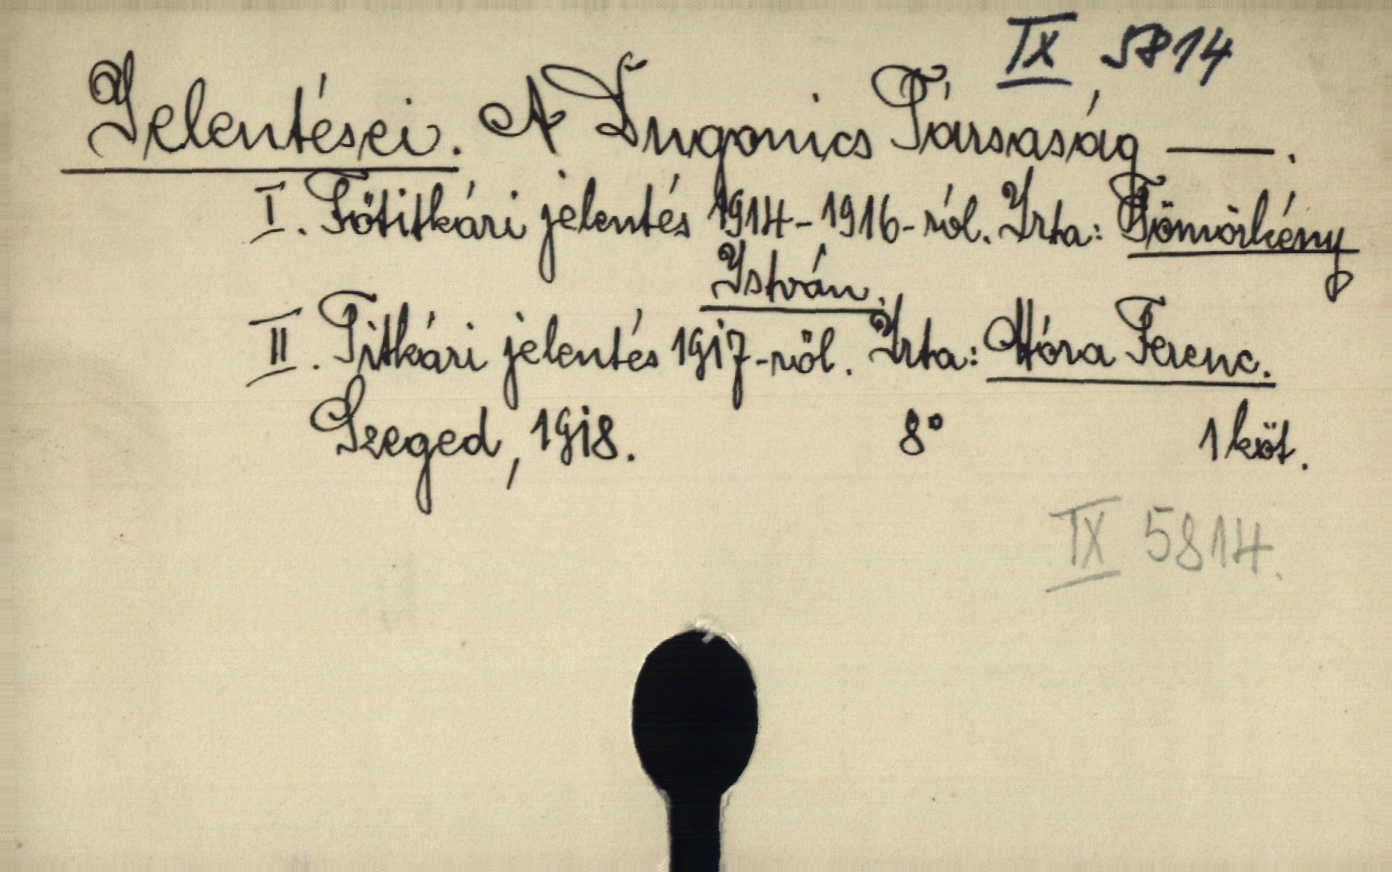 IX 5814
Jelentései. A Dugonics Társaság —.
I. Főtitkári jelentés 1914-1916-ról. Irta: Tömörkény
István.
II. Titkári jelentés 1917-ről. Irta: Móra Ferenc.
Szeged, 1918. 8° 1 köt.
IX 5814.